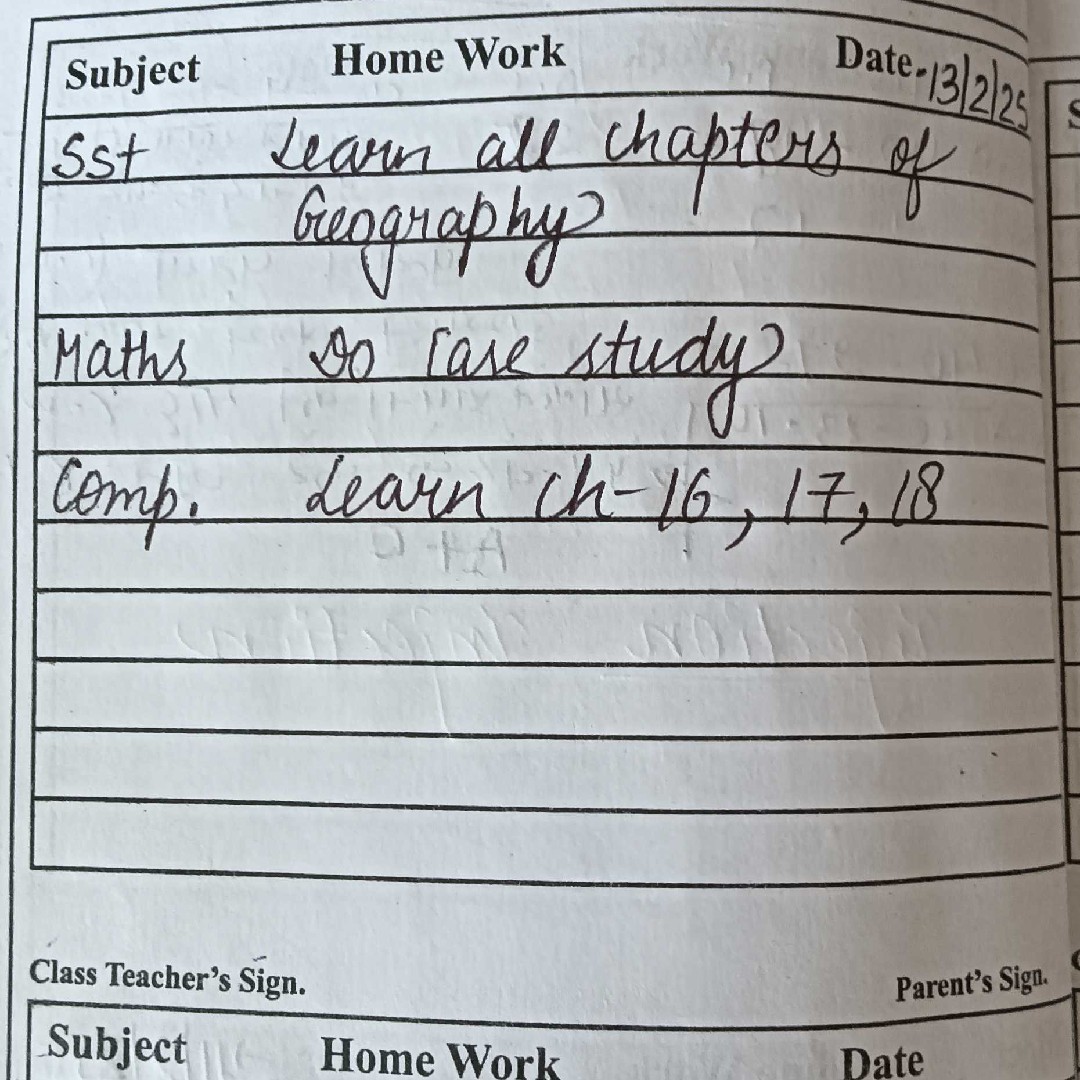 Subject Home Work Date-13/2/25
Sst Learn all chapters of
Geography
Maths Do Case study
Comp. Learn Ch-16, 17, 18
Class Teacher's Sign. Parent's Sign.
Subject Home Work Date